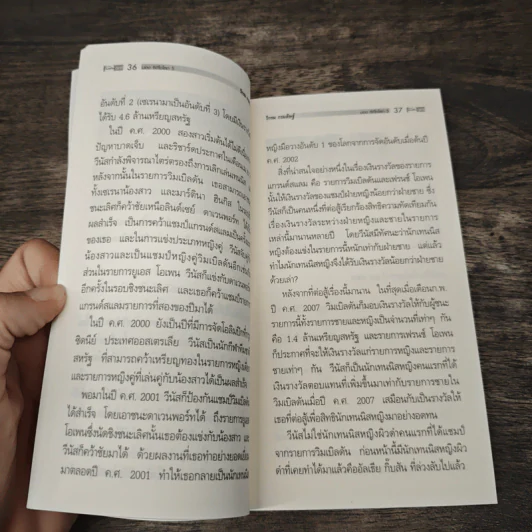 36
อันดับที่ 2 (เซเรนามาเป็นอันดับที่ 3) โดยมีเงินราง
ได้รับ 4.6 ล้านเหรียญสหรัฐ
ในปี ค.ศ. 2000 สองสาวเริ่มต้นได้ไม่ดีนัก
ปัญหาบาดเจ็บ และริชาร์ดประกาศในเดือน
วีนัสกำลังพิจารณาไตร่ตรองถึงการเลิกเล่นเทนนิส
หลังจากนั้นในรายการวิมเบิลดัน เธอสามารถ
ทั้งเซเรนาน้องสาว และมาร์ตินา ฮินกิส
ชนะเลิศก็คว้าชัยเหนือลินด์เซย์ ดาเวนพอร์ท ได้
ผลสำเร็จ เป็นการคว้าแชมป์แกรนด์สแลมเป็นครั้ง
ของเธอ และในการแข่งประเภทหญิงคู่ วีนัส
น้องสาวและเป็นแชมป์หญิงคู่วิมเบิลดันอีกเช่น
ส่วนในรายการยูเอส โอเพน วีนัสก็แข่งกับดาเวนพอร์ท
อีกครั้งในรอบชิงชนะเลิศ และเธอก็คว้าแชมป์ราย
แกรนด์สแลมรายการที่สองของปีมาได้
ในปี ค.ศ. 2000 ยังเป็นปีที่มีการจัดโอลิมปิกที่
ซิดนีย์ ประเทศออสเตรเลีย วีนัสเป็นนักกีฬาทีม
สหรัฐ ที่สามารถคว้าเหรียญทองในรายการหญิงเดี่ยว
และรายการหญิงคู่ที่เล่นคู่กับน้องสาวได้เป็นผลสำเร็จ
พอมาในปี ค.ศ. 2001 วีนัสก็ป้องกันแชมป์วิมเบิลดัน
ได้สำเร็จ โดยเอาชนะดาเวนพอร์ทได้ ถึงรายการยูเอส
โอเพนซึ่งนัดชิงชนะเลิศนั้นเธอต้องแข่งกับน้องสาว และ
วีนัสก็คว้าชัยมาได้ ด้วยผลงานที่เธอทำอย่างยอดเยี่ยม
มาตลอดปี ค.ศ. 2001 ทำให้เธอกลายเป็นนักเทนนิส
37
หญิงมือวางอันดับ 1 ของโลกจากการจัดอันดับเมื่อต้นปี
ค.ศ. 2002
สิ่งที่น่าสนใจอย่างหนึ่งในเรื่องเงินรางวัลของรายการ
แกรนด์สแลม คือ รายการวิมเบิลดันและเฟรนช์ โอเพน
นั้นให้เงินรางวัลของแชมป์ฝ่ายหญิงน้อยกว่าฝ่ายชาย ซึ่ง
วีนัสก็เป็นคนหนึ่งที่ต่อสู้เรียกร้องสิทธิความทัดเทียมกัน
เรื่องเงินรางวัลระหว่างฝ่ายหญิงและชายในรายการ
เหล่านี้มานานหลายปี โดยวีนัสมีทัศนะว่านักเทนนิส
หญิงต้องแข่งในรายการนี้หนักเท่ากับฝ่ายชาย แต่แล้ว
ทำไมนักเทนนิสหญิงจึงได้รับเงินรางวัลน้อยกว่าฝ่ายชาย
ด้วยเล่า?
หลังจากที่ต่อสู้เรื่องนี้มานาน ในที่สุดเมื่อเดือนก.พ.
ปี ค.ศ. 2007 วิมเบิลดันก็มอบเงินรางวัลให้กับผู้ชนะ
รายการนี้ทั้งรายการชายและหญิงเป็นจำนวนที่เท่าๆ กัน
คือ 1.4 ล้านเหรียญสหรัฐ และรายการเฟรนช์ โอเพน
ก็ประกาศที่จะให้เงินรางวัลแก่รายการหญิงและรายการ
ชายเท่าๆ กัน วีนัสก็เป็นนักเทนนิสหญิงคนแรกที่ได้
เงินรางวัลตอบแทนที่เพิ่มขึ้นมาเท่ากับรายการชายใน
วิมเบิลดันเมื่อปี ค.ศ. 2007 เสมือนกับเป็นรางวัลให้
เธอที่ต่อสู้เพื่อสิทธินักเทนนิสหญิงมาอย่างอดทน
วีนัสไม่ใช่นักเทนนิสหญิงผิวดำคนแรกที่ได้แชมป์
จากรายการวิมเบิลดัน ก่อนหน้านี้มีนักเทนนิสหญิงผิว
ดำที่เคยทำได้มาแล้วคืออัลเธีย กิ๊บสัน ที่ล่วงลับไปแล้ว